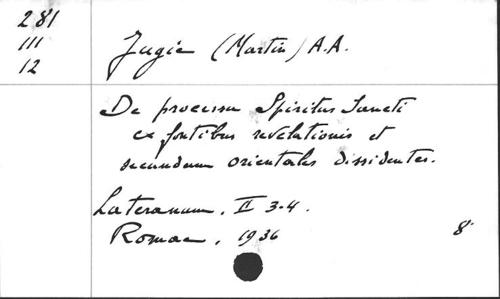 281
111
12
Jugie (Martin) A.A.
De processu Spiritus Sancti
ex fontibus revelationis et
secundum orientales dissidentes.
Lateranum, II 3-4.
Romae, 1936
8°